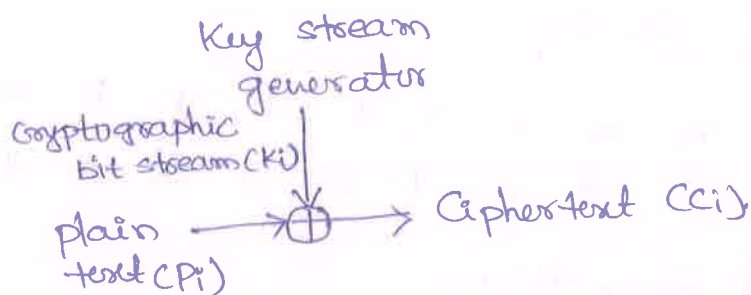 Key stream
generator
cryptographic
bit stream(Ki)
plain
text(Pi)
Ciphertext (Ci).